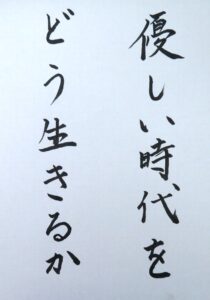 優しい時代を
どう生きるか